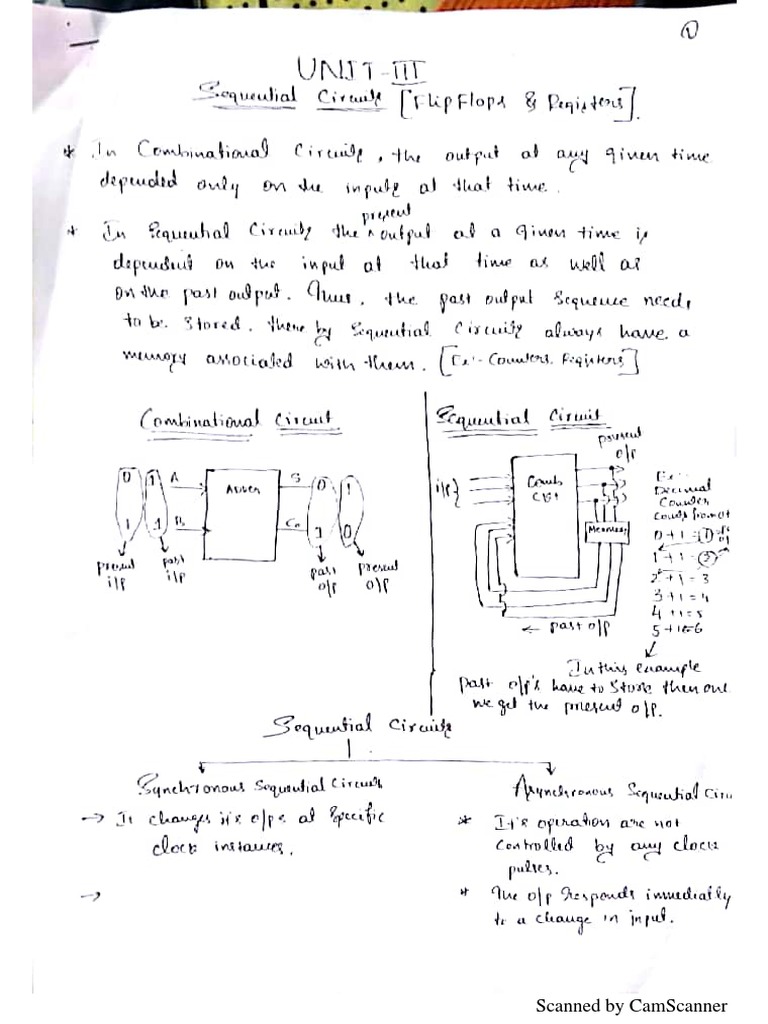 1
UNIT-III
Sequential Circuits [FlipFlops & Registers].
* In Combinational Circuits, the output at any given time
depended only on the inputs at that time.
* In Sequential Circuits the present output at a given time is
dependent on the input at that time as well as
on the past output. Thus, the past output sequence needs
to be stored, there by sequential circuits always have a
memory associated with them. [Ex:- Counters, Registers]
Combinational Circuit
0 1 A
Adder
S 0 1
1 1 B
Co 1 0
present
i/p
past
i/p
past
o/p
present
o/p
Sequential Circuit
present
o/p
i/p}
Comb
Ckt
Memory
← past o/p
Ex:-
Decimal
Counter
Counts from 0
0+1 = 1
1+1 = 2
2+1 = 3
3+1 = 4
4+1 = 5
5+1=6
In this example
past o/p's have to store then only
we get the present o/p.
Sequential Circuits
Synchronous Sequential Circuits
→ It changes it's o/ps at specific
clock instances.
→
Asynchronous Sequential Circu
* It's operation are not
controlled by any clock
pulses.
* The o/p responds immediatly
to a change in input.
Scanned by CamScanner